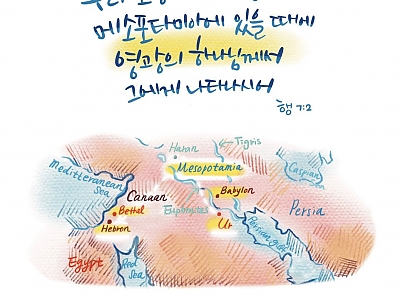 메소포타미아에 있을 때에
영광의 하나님께서
그에게 나타나시어
행 7:2
Haran
Tigris
Mesopotamia
Mediterranean Sea
Caspian Sea
Canaan
Babylon
Euphrates
Bethel
Ur
Persia
Hebron
Persian gulf
Egypt
Red Sea